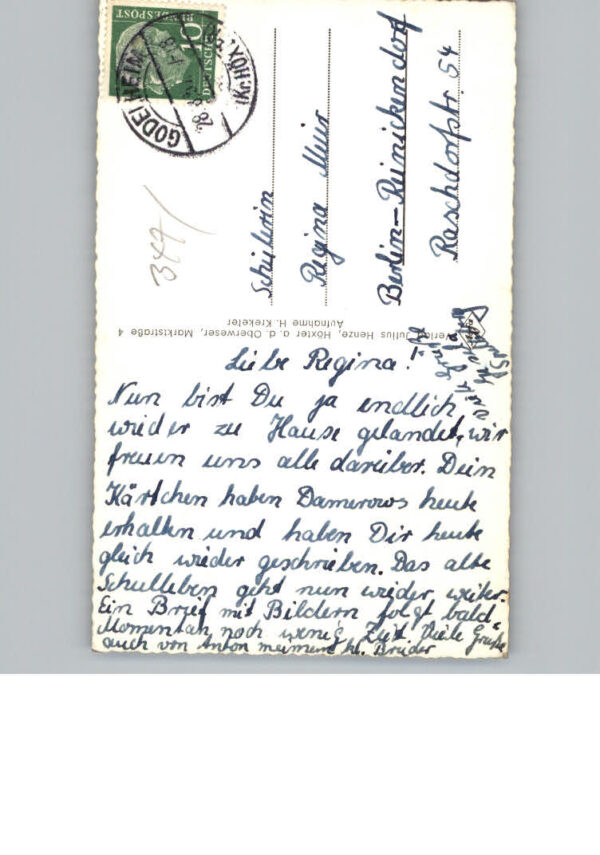 10
DEUTSCHE
BUNDESPOST
GODELHEIM
(Kr. HÖXTER)
344/
Schülerin
Regina Meier
Berlin-Reinickendorf
Raschdorfstr. 54
Verlag Julius Henze, Höxter a. d. Oberweser, Marktstraße 4
Aufnahme H. Krekeler
Liebe Regina!
Nun bist Du ja endlich
wieder zu Hause gelandet, wir
freuen uns alle darüber. Dein
Kärtchen haben Damerows heute
erhalten und haben Dir heute
gleich wieder geschrieben. Das alte
Schulleben geht nun wieder weiter.
Ein Brief mit Bildern folgt bald
Momentan noch wenig Zeit. Viele Grüße
auch von Anton meinem kl. Bruder